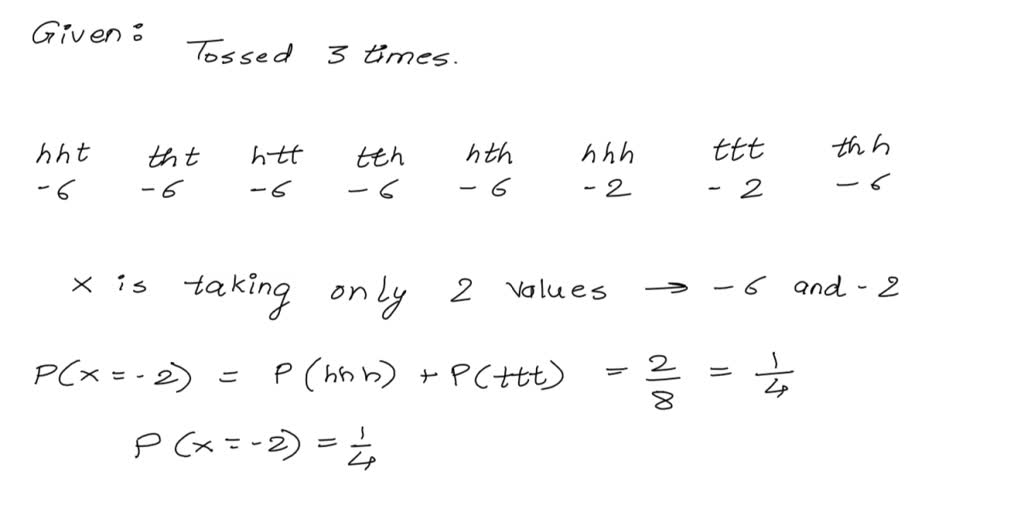 Given:
Tossed 3 times.
hht tht htt tth hth hhh ttt thh
-6 -6 -6 -6 -6 -2 -2 -6
x is taking only 2 values → -6 and -2
P(x = -2) = P(hhh) + P(ttt) = 2/8 = 1/4
P(x = -2) = 1/4